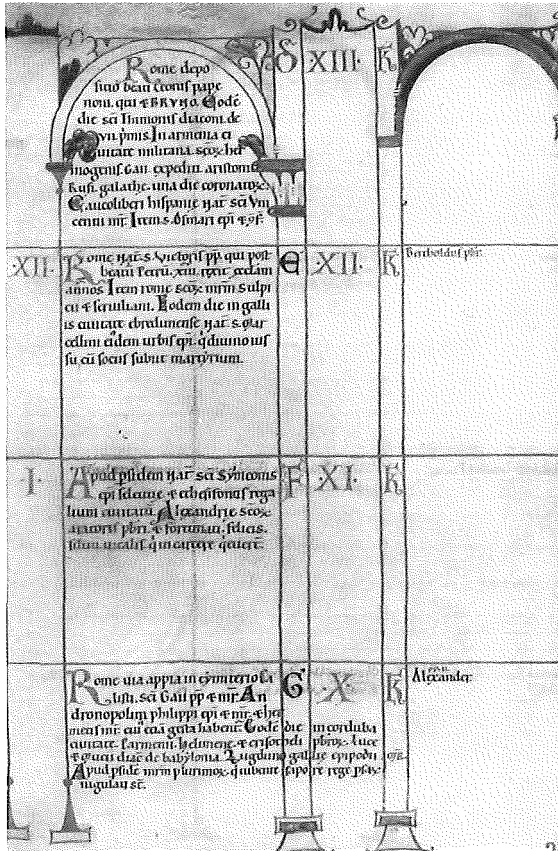 Rome depo
sitio beati Leonis pape
noni. qui & BRVNO. Eodē
die sc̄i Timonis diaconi. de
VII. p̄mis. In armenia ci
uitate militana. scoꝝ her
mogenis. Gaii expediti. aristonici
Rufi. galathe. una die coronatoꝝ.
hispanie Nat̄ sc̄i Vin
centii mr̄. Item s. Osmari ep̄i & ɔf.
S XIII K
XII
Rome Nat̄. s. Victoris pp. qui post
beatū
annos. Item rome scoꝝ mr̄m Sulpi
cii & seruiliani. Eodem die in galli
is ciuitate ebredunense Nat̄. s. Mar
cellini eiusdem urbis ep̄i. q̄ diuino ius
su cū sociis subiit martyrium.
E XII K
Bertholdus pbr.
I
Apud psidem Nat̄ sc̄i Symeonis
ep̄i seleucie & ctesifontis rega
lium ciuitatū. Alexandrie scoꝝ
aratoris pbri. & fortunati. felicis.
siluii uitalis. q̄ in carcere q̄euer̄.
F XI K
Rome uia appia in cymiterio Ca
listi. sc̄i Gaii pp & mr̄. An
dronopolim philippi ep̄i & mr̄. & her
metis mr̄. Eodē die in corduba
ciuitate. parmenii. helimene. & crisoteli pbroꝝ. Luce
& mucii diac̄ de babylonia. Lugduno gallie epipodii
Apud psidē mr̄m plurimoꝝ. q̄ iubente sapore rege psaꝝ
iugulati st̄.
G X K
Alexander